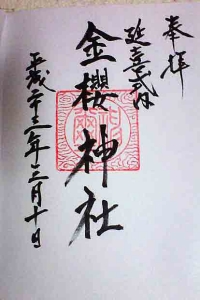 奉拝
延喜式内
金櫻神社
平成二十三年三月十日